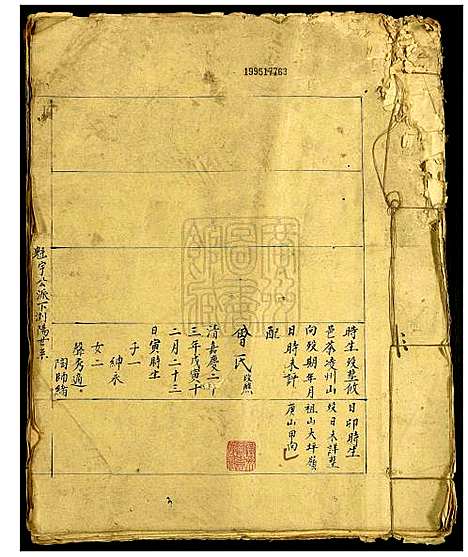 199517763
時生歿塋攸 日卯時生
邑茶凌州山 歿日未詳塋
向歿期年月 祖山大坪嶺
日時未詳 廣山甲向
配
曾氏歿照
清嘉慶二十
三年戊寅十
二月二十三
日寅時生
子一
紳永
女二
長秀適
陶師緒
魁宇公派下瀏陽世系